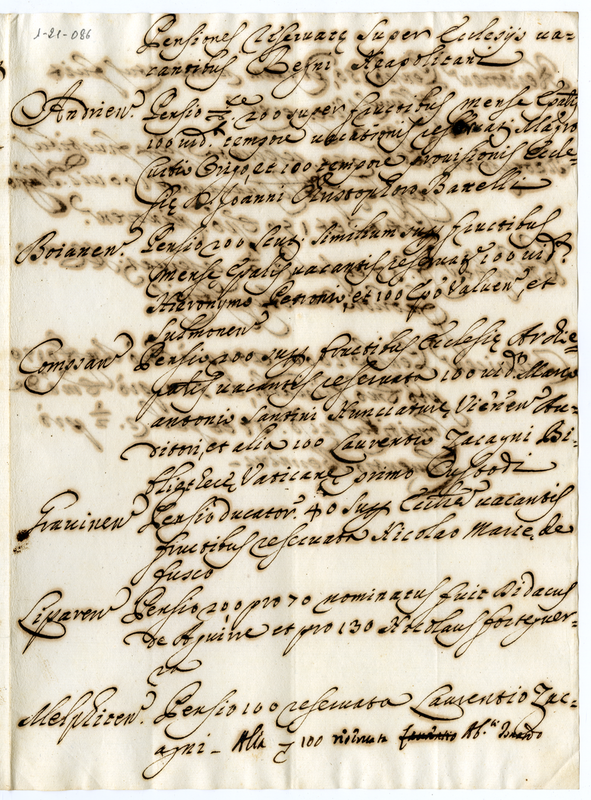 1-21-086
Pensiones reservatę super Ecclesijs va-
cantibus Regni Neapolitani
Andrien. Pensio 200 super fructibus mensę Epalis
100 vid. tempore vacationis reservat.
et 100 tempore provisionis Eccle-
się D. Joanni Christophoro Barelli
Boianen. Pensio 200 scut. similium sup. fructibus
mensę Epalis vacantis reservat. 100 vid.
Hieronymo Petronio, et 100 Epo Valuen. et
Sulmonen.
Compsan. Pensio 200 sup. fructibus Ecclesię Archie-
palis vacantis reservata 100 vid. Marco
antonio Santini Nunciaturę Viennen. Au-
ditori, et alia 100 Laurentio Zacagni Bi-
bliothecę Vaticanę primo Custodi
Gravinen. Pensio ducator. 40 sup. Ecclię vacantis
fructibus reservata Nicolao Marię de
fusco
Liparen. Pensio 200 pro 70 nominatus fuit Didacus
de Aguirre et pro 130 Nicolaus forteguer-
ra
Melphiten. Pensio 100 reservata Laurentio Zac-
agni - Alia 100 riservata Ab.